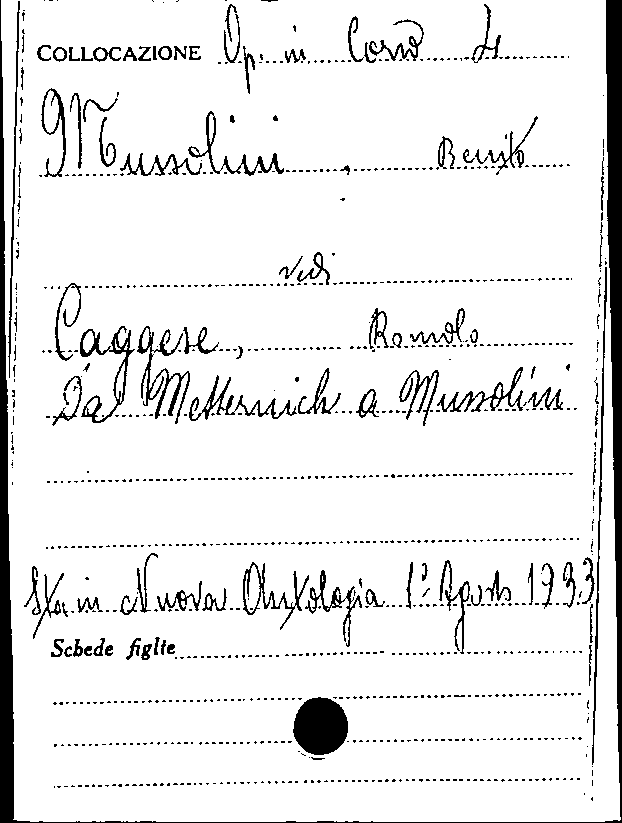 COLLOCAZIONE Op. in Corso 4
Mussolini, Benito
vedi
Caggese, Romolo
Da Metternich a Mussolini
Sta in Nuova Antologia 1º Agosto 1933
Schede figlie